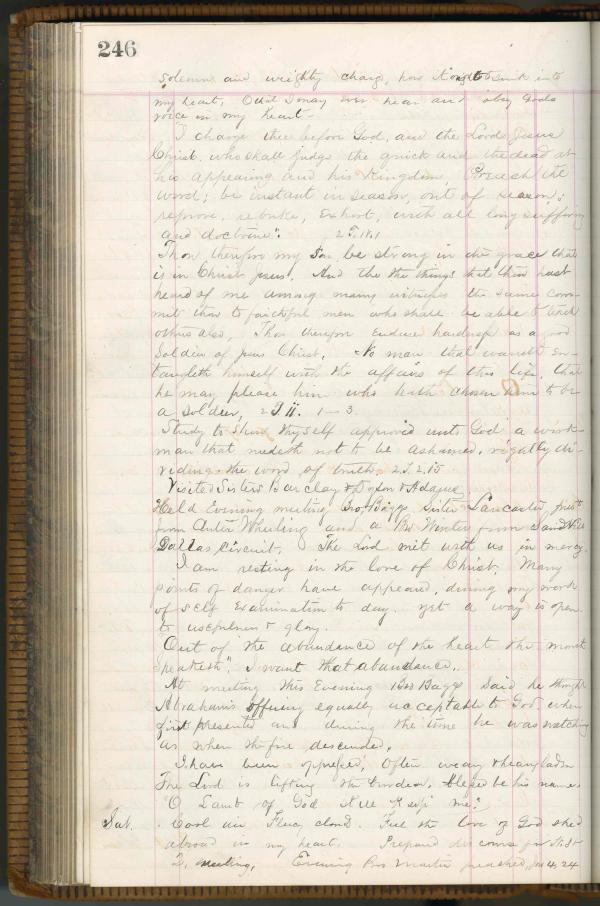 246
Solemn and weighty charge, how it ought to sink into
my heart. O that I may ever hear and obey Gods
voice in my heart—
I charge thee before God, and the Lord Jesus
Christ. who shall judge the quick and the dead at
his appearing and his Kingdom, Preach the
word; be instant in season, out of season;
reprove, rebuke, exhort, with all long suffering
and doctrine". 2 T.
Thou therefore my Son, be strong in the grace that
is in Christ Jesus. And the the things that thou hast
heard of me among many witnesses the same com-
mit thou to faithful men who shall be able to teach
others also, Thou therefore Endure hardness as a good
Soldier of Jesus Christ. No man that warreth En-
tangleth himself with the affairs of this life, that
he may please him who hath chosen him to be
a soldier, 2 T. ii. 1-3.
Study to Shew thyself approved unto God a work-
man that needeth not to be ashamed, rightly di-
viding the word of truth, 2 T. 2. 15
Visited Sisters Barclay & Dyson & Adams
Held Evening meeting Bro Baggs Sister Lancaster,
from Wheeling and a Bro Winter from Sand Hill
Dallas Circuit. The Lord met with us in mercy.
I am resting in the love of Christ. Many
points of danger have appeared, during my work
of self Examination to day. yet a way is open
to usefulness & glory.
Out of the abundance of the heart the mouth
Speaketh". I want that abundance.
At meeting this Evening Bro Baggs Said he thought
Abraham's offering equally acceptable to God when
first presented and during the time he was watching
as when the fire descended,
I have been oppressed, often weary
The Lord is lifting the burden. blessed be his name.
O Lamb of God Keep me"
Sat. Cool air Flecy cloud. Feel the love of God shed
abroad in my heart. Prepared discourse for
meeting. Evening Bro Martin preached, 4, 24